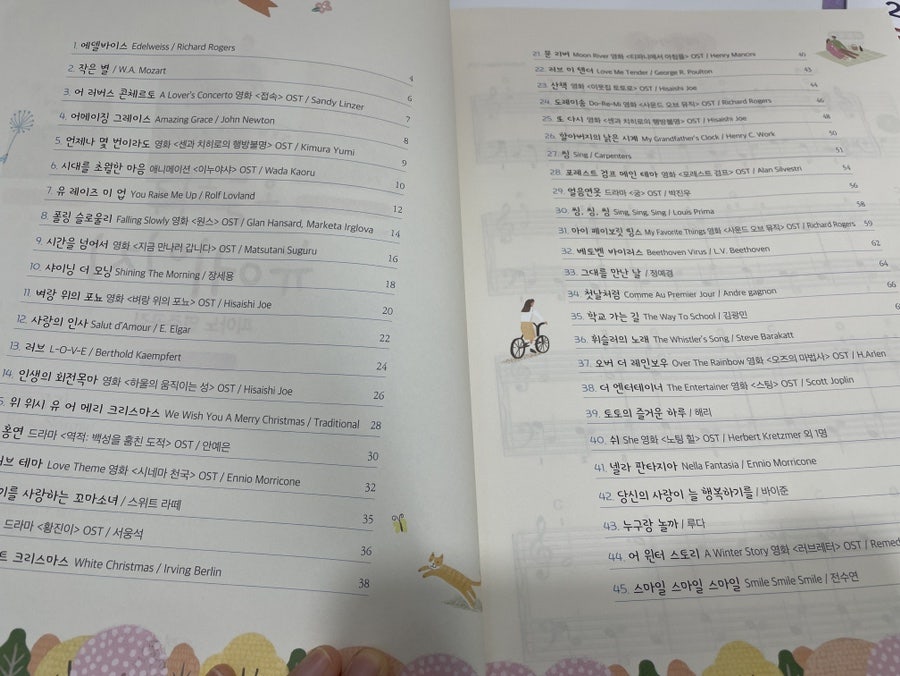 1. 에델바이스 Edelweiss / Richard Rogers 4
2. 작은 별 / W.A. Mozart 6
3. 어 러버스 콘체르토 A Lover's Concerto 영화 <접속> OST / Sandy Linzer 7
4. 어메이징 그레이스 Amazing Grace / John Newton 8
5. 언제나 몇 번이라도 영화 <센과 치히로의 행방불명> OST / Kimura Yumi 9
6. 시대를 초월한 마음 애니메이션 <이누야샤> OST / Wada Kaoru 10
7. 유 레이즈 미 업 You Raise Me Up / Rolf Lovland 12
8. 폴링 슬로울리 Falling Slowly 영화 <원스> OST / Glan Hansard, Marketa Irglova 14
9. 시간을 넘어서 영화 <지금 만나러 갑니다> OST / Matsutani Suguru 16
10. 샤이닝 더 모닝 Shining The Morning / 장세용 18
11. 벼랑 위의 포뇨 영화 <벼랑 위의 포뇨> OST / Hisaishi Joe 20
12. 사랑의 인사 Salut d'Amour / E. Elgar 22
13. 러브 L-O-V-E / Berthold Kaempfert 24
14. 인생의 회전목마 영화 <하울의 움직이는 성> OST / Hisaishi Joe 26
위 위시 유 어 메리 크리스마스 We Wish You A Merry Christmas / Traditional 28
홍연 드라마 <역적: 백성을 훔친 도적> OST / 안예은 30
테마 Love Theme 영화 <시네마 천국> OST / Ennio Morricone 32
사랑하는 꼬마소녀 / 스위트 라떼 35
드라마 <황진이> OST / 서웅석 36
크리스마스 White Christmas / Irving Berlin 38
21. 문 리버 Moon River 영화 <티파니에서 아침을> OST / Henry Mancini 40
22. 러브 미 텐더 Love Me Tender / George R. Poulton 43
23. 산책 영화 <이웃집 토토로> OST / Hisaishi Joe 44
24. 도레미송 Do-Re-Mi 영화 <사운드 오브 뮤직> OST / Richard Rogers 46
25. 또 다시 영화 <센과 치히로의 행방불명> OST / Hisaishi Joe 48
26. 할아버지의 낡은 시계 My Grandfather's Clock / Henry C. Work 50
27. 씽 Sing / Carpenters 51
28. 포레스트 검프 메인 테마 영화 <포레스트 검프> OST / Alan Silvestri 54
29. 얼음연못 드라마 <궁> OST / 박진우 56
30. 씽, 씽, 씽 Sing, Sing, Sing / Louis Prima 58
31. 마이 페이보릿 띵스 My Favorite Things 영화 <사운드 오브 뮤직> OST / Richard Rogers 59
32. 베토벤 바이러스 Beethoven Virus / L.V. Beethoven 62
33. 그대를 만난 날 / 정예경 64
34. 첫날처럼 Comme Au Premier Jour / Andre gagnon 66
35. 학교 가는 길 The Way To School / 김광민
36. 휘슬러의 노래 The Whistler's Song / Steve Barakatt
37. 오버 더 레인보우 Over The Rainbow 영화 <오즈의 마법사> OST / H.Arlen
38. 더 엔터테이너 The Entertainer 영화 <스팅> OST / Scott Joplin
39. 토토의 즐거운 하루 / 해리
40. 쉬 She 영화 <노팅 힐> OST / Herbert Kretzmer 외 1명
41. 넬라 판타지아 Nella Fantasia / Ennio Morricone
42. 당신의 사랑이 늘 행복하기를 / 바이준
43. 누구랑 놀까 / 루다
44. 어 윈터 스토리 A Winter Story 영화 <러브레터> OST / Remed
45. 스마일 스마일 스마일 Smile Smile Smile / 전수연